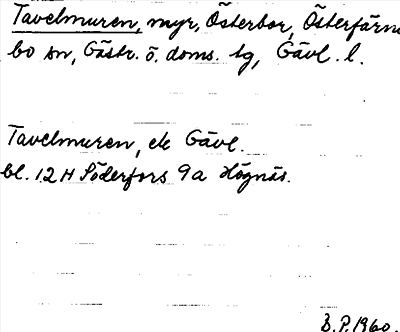 Tavelmuren, myr, Österbor, Österfärne
bo sn, Gästr. ö. doms. tg, Gävl. l.
Tavelmuren, ek Gävl.
bl. 12 H Söderfors 9a Högnäs.
B.P. 1960.